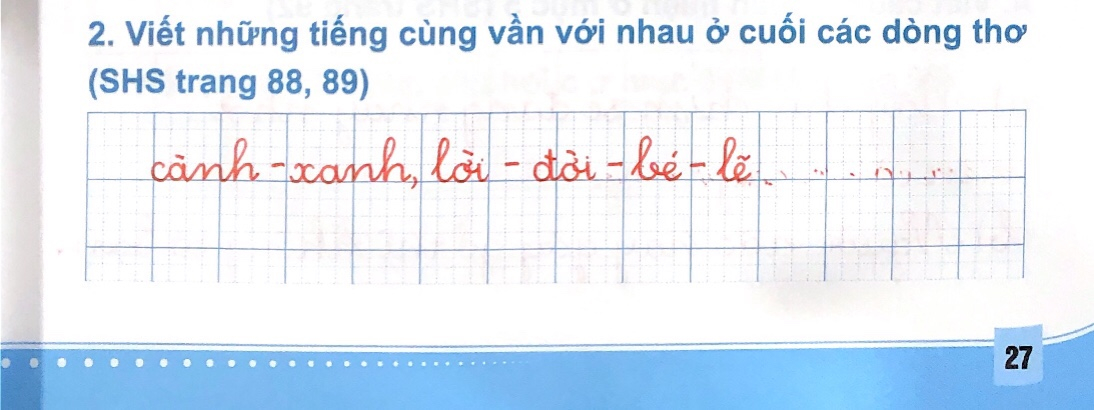 2. Viết những tiếng cùng vần với nhau ở cuối các dòng thơ
(SHS trang 88, 89)
cành - xanh, lời - đời - bé - lẽ
27